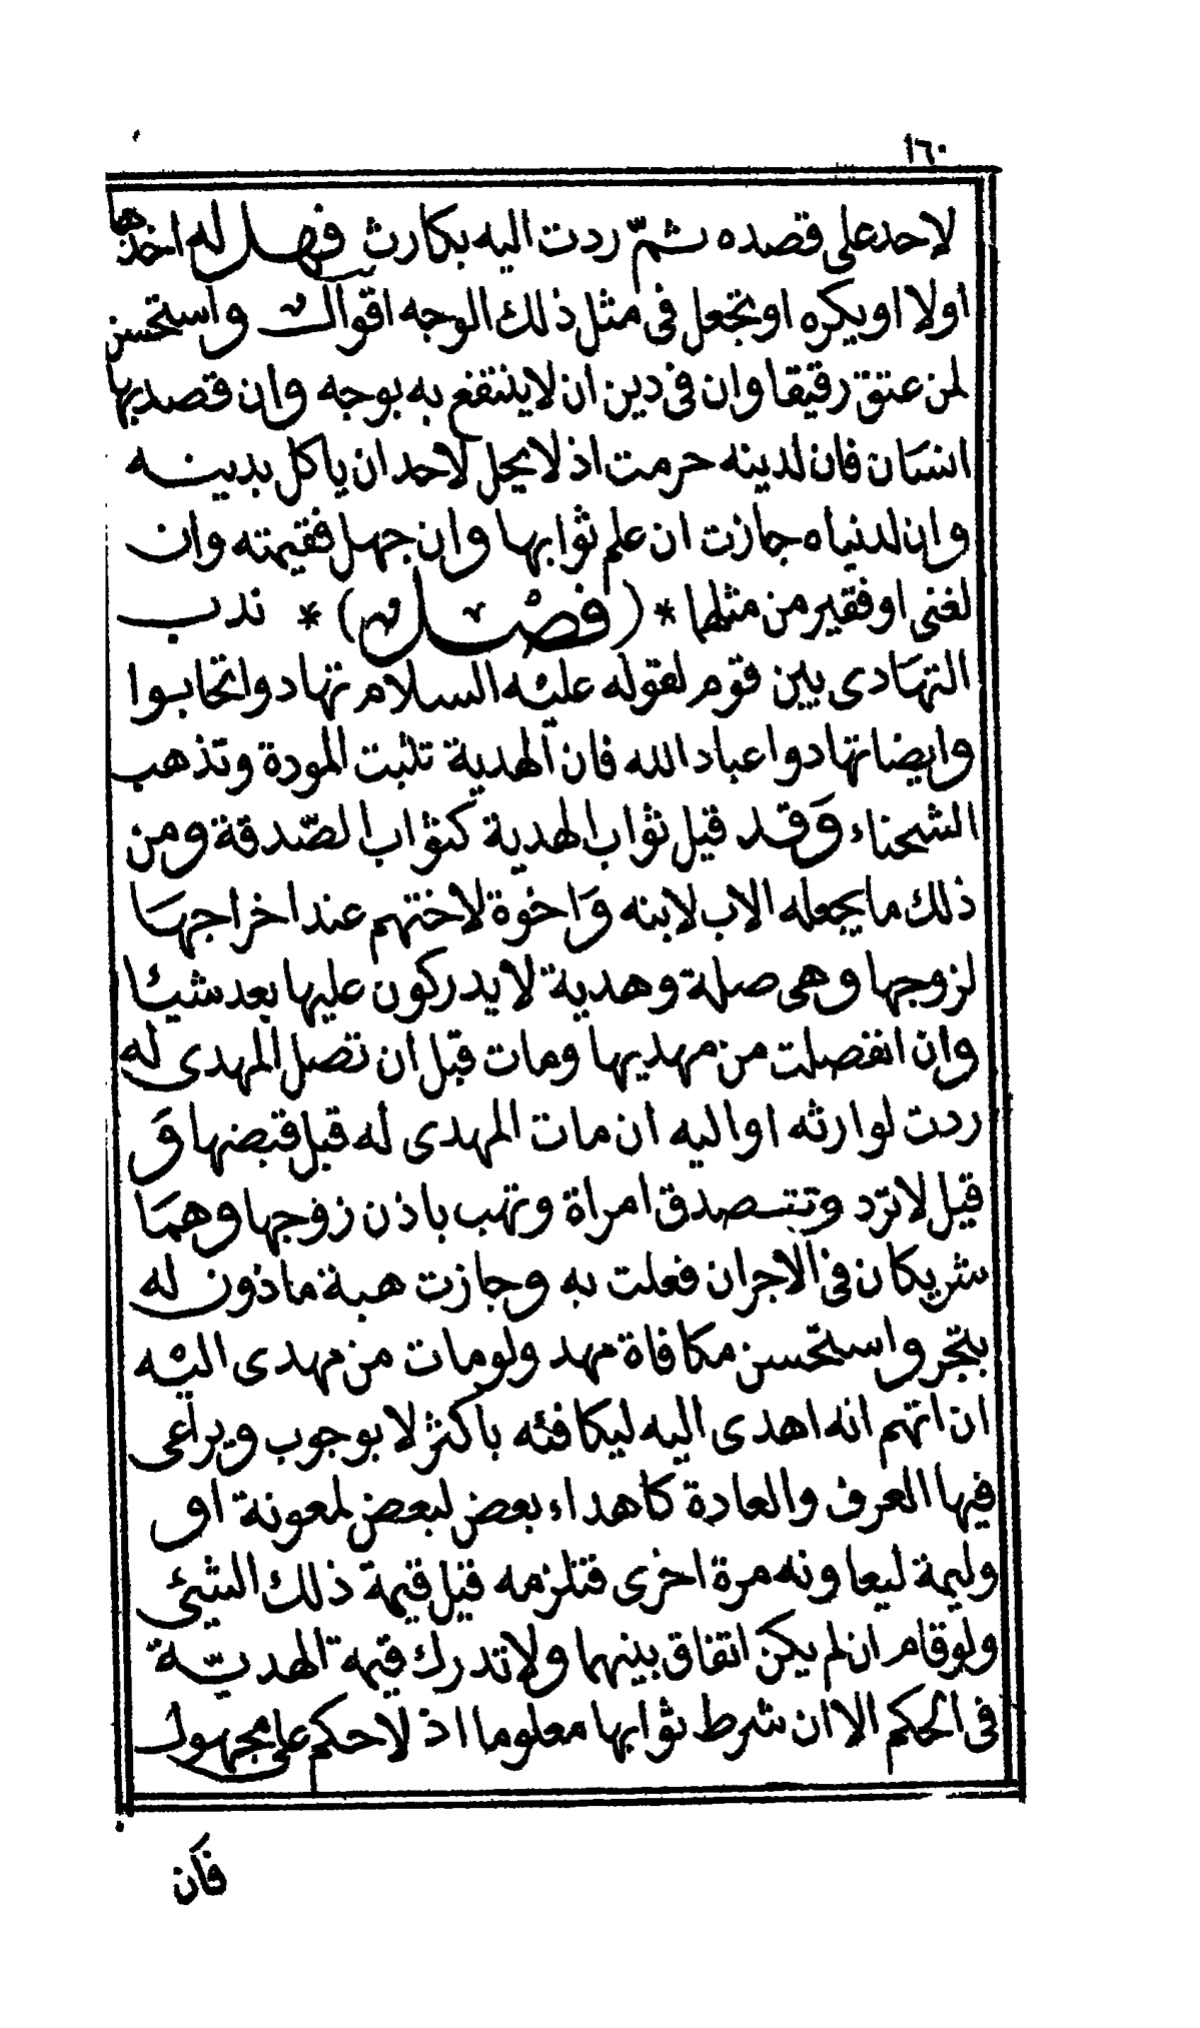 ١٦٠
لاحد على قصده ثمّ ردت اليه بكارث فهل له اخذها
اولا او يكره او تجعل فى مثل ذلك الوجه اقوال واستحسن
لمن عتق رقيقا وان فى دين ان لا ينتفع به بوجه وان قصد بها
انسان فان لدينه حرمت اذ لا يحل لاحد ان ياكل بدينه
وان لدنياه جازت ان علم ثوابها وان جهل فقيمته وان
لغنى او فقير من مثلهما * (فصل) * ندب
التهادى بين قوم لقوله عليه السلام تهادوا تحابوا
وايضا تهادوا عباد الله فان الهدية تثبت المودة وتذهب
الشحناء وَقد قيل ثواب الهدية كثواب الصّدقة ومن
ذلك ما يجعله الاب لابنه وَاخوة لاختهم عند اخراجها
لزوجها وهى صلة وهدية لا يدركون عليها بعد شيئا
وان انفصلت من مهديها ومات قبل ان تصل المهدى له
ردت لوارثه او اليه ان مات المهدى له قبل قبضها وَ
قيل لا ترد وتتصدق امراة وتهب باذن زوجها وهما
شريكان فى الاجر ان فعلت به وجازت هبة ماذون له
بتجر واستحسن مكافاة مهد ولو مات من مهدى اليه
ان اتهم انه اهدى اليه ليكافئه باكثر لا بوجوب ويراعى
فيها العرف والعادة كاهداء بعض لبعض لمعونة او
وليمة ليعاونه مرة اخرى فتلزمه قيل قيمة ذلك الشيئ
ولو قام ان لم يكن اتفاق بينهما ولا تدرك قيمة الهديّة
فى الحكم الا ان شرط ثوابها معلوما اذ لا حكم على مجهول
فان